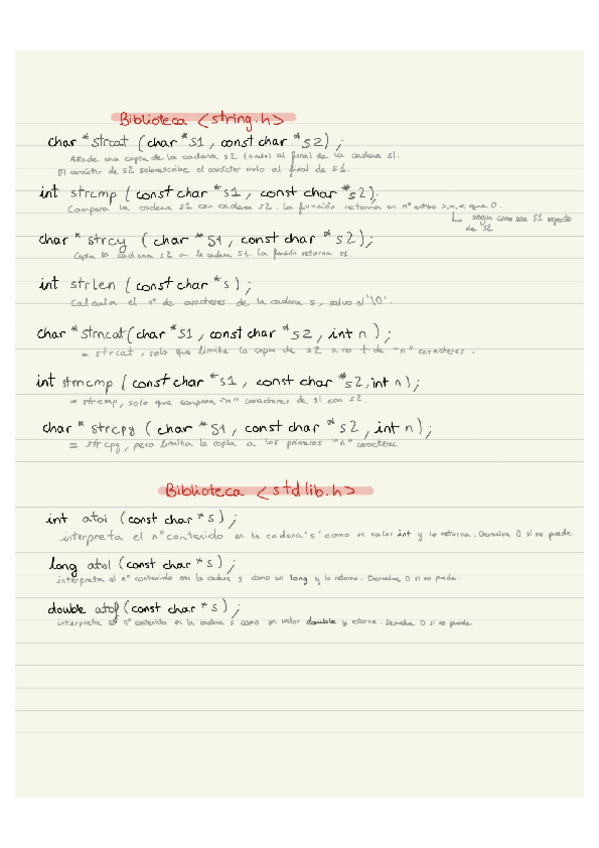 Biblioteca <string.h>
char * strcat (char *s1, const char *s2);
Añade una copia de la cadena s2 (+nulo) al final de la cadena s1.
El carácter de s2 sobreescribe el carácter nulo al final de s1.
int strcmp (const char *s1, const char *s2);
Compara la cadena s1 con cadena s2. La función retorna un nº entero >,=,< que 0.
↳ según como sea s1 respecto
de s2
char * strcy (char *s1, const char *s2);
Copia la cadena s2 a la cadena s1. La función retorna s1.
int strlen (const char *s);
Calcula el nº de caracteres de la cadena s, salvo el '\0'.
char *strncat(char *s1, const char *s2, int n);
= strcat, solo que limita la copia de s2 a no + de "n" caracteres.
int strncmp (const char *s1, const char *s2, int n);
= strcmp, solo que compara "n" caracteres de s1 con s2.
char * strcpy (char *s1, const char *s2, int n);
= strcpy, pero limita la copia a los primeros "n" caracteres.
Biblioteca <stdlib.h>
int atoi (const char *s);
interpreta el nº contenido en la cadena 's' como un valor int y lo retorna. Devuelve 0 si no puede.
long atol (const char *s);
interpreta el nº contenido en la cadena s como un long y lo retorna. Devuelve 0 si no puede.
double atof (const char *s);
interpreta el nº contenido en la cadena s como un valor double y retorna. Devuelve 0 si no puede.